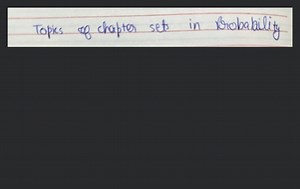 Topics of chapter sets in Probability